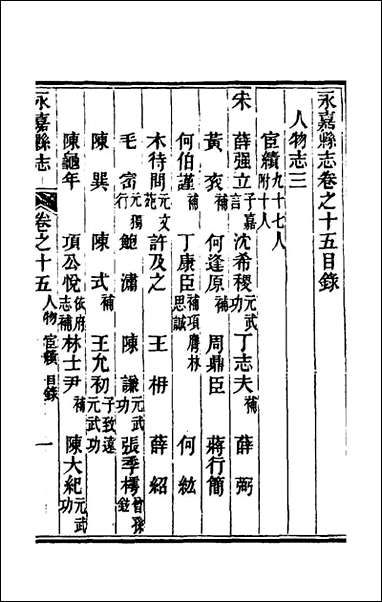 永嘉縣志卷之十五目錄
人物志三
宦績九十七人附十人
宋 薛强立子嘉言 沈希稷元武功 丁志夫補 薛弼
黃袤補 何逢原補 周鼎臣 蔣行簡
何伯謹補 丁康臣補項膺思誠 林 何紘
木待問元文苑 許及之 王枏 薛紹
毛宻元獨行 鮑潚 陳謙元武功 張季樗曾孫
陳巽 陳式補 王允初子致遠元武功
陳龜年 項公悅依府志補 林士尹補 陳大紀元武功
永嘉縣志 卷之十五 人物 宦績 目錄 一